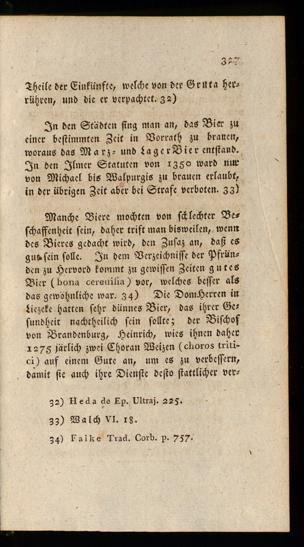 327
Theile der Einkünfte, welche von der Gruta her-
rühren, und die er verpachtet. 32)
In den Städten fing man an, das Bier zu
einer bestimmten Zeit in Vorrath zu brauen,
woraus das Marz- und LagerBier entstand.
In den Ilmer Statuten von 1350 ward nur
von Michael bis Walpurgis zu brauen erlaubt,
in der übrigen Zeit aber bei Strafe verboten. 33)
Manche Biere mochten von schlechter Be-
schaffenheit sein, daher trift man bisweilen, wenn
des Bieres gedacht wird, den Zusaz an, daß es
gut sein solle. In dem Verzeichnisse der Pfrün-
den zu Hervord kommt zu gewissen Zeiten gutes
Bier (bona cereuisia) vor, welches besser als
das gewöhnliche war. 34) Die DomHerren in
Liezeke hatten sehr dünnes Bier, das ihrer Ge-
sundheit nachtheilich sein sollte; der Bischof
von Brandenburg, Heinrich, wies ihnen daher
1275 järlich zwei Choran Weizen (choros triti-
ci) auf einem Gute an, um es zu verbessern,
damit sie auch ihre Dienste desto stattlicher ver-
32) Heda de Ep. Ultraj. 225.
33) Walch VI. 18.
34) Falke Trad. Corb. p. 757.